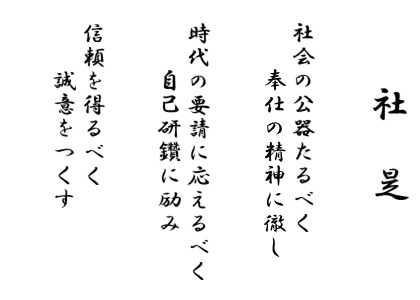 社是
社会の公器たるべく
奉仕の精神に徹し
時代の要請に応えるべく
自己研鑽に励み
信頼を得るべく
誠意をつくす